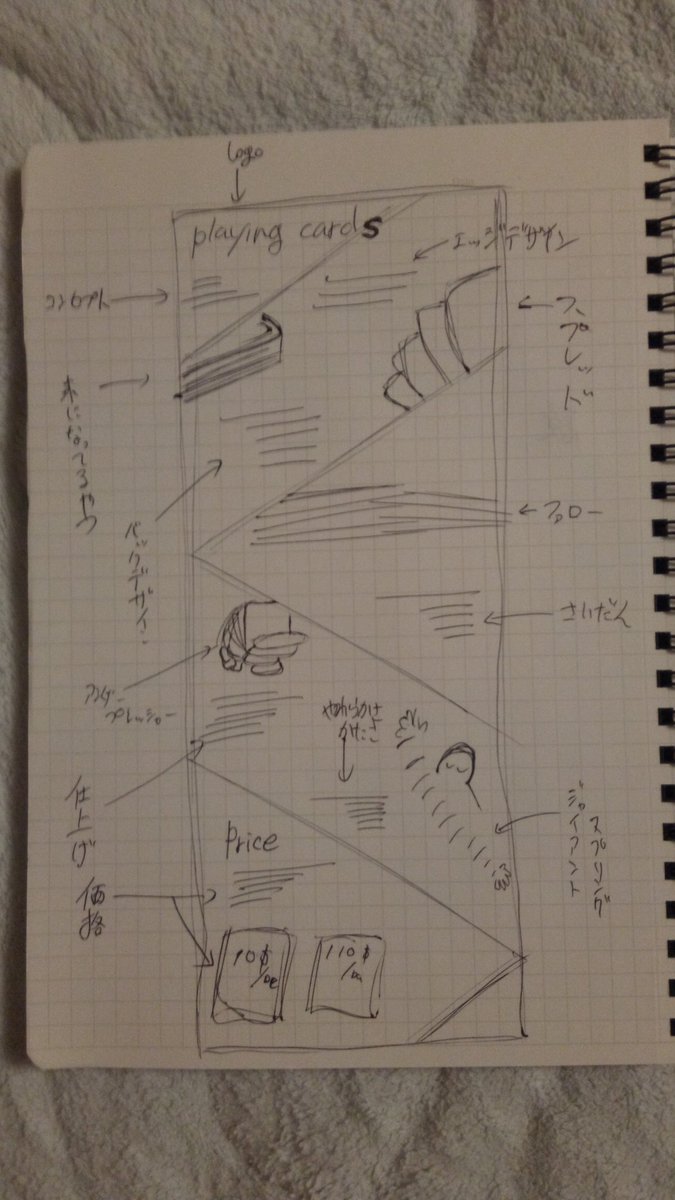 logo
playing cards
エッジデザイン
コンセプト
スプレッド
本になってるやつ
バックデザイン
ファロー
さいだん
アンダー
プレッシャー
やわらかさ
かたさ
仕上げ
ジャイアント
スプリング
Price
価格
10$
110$